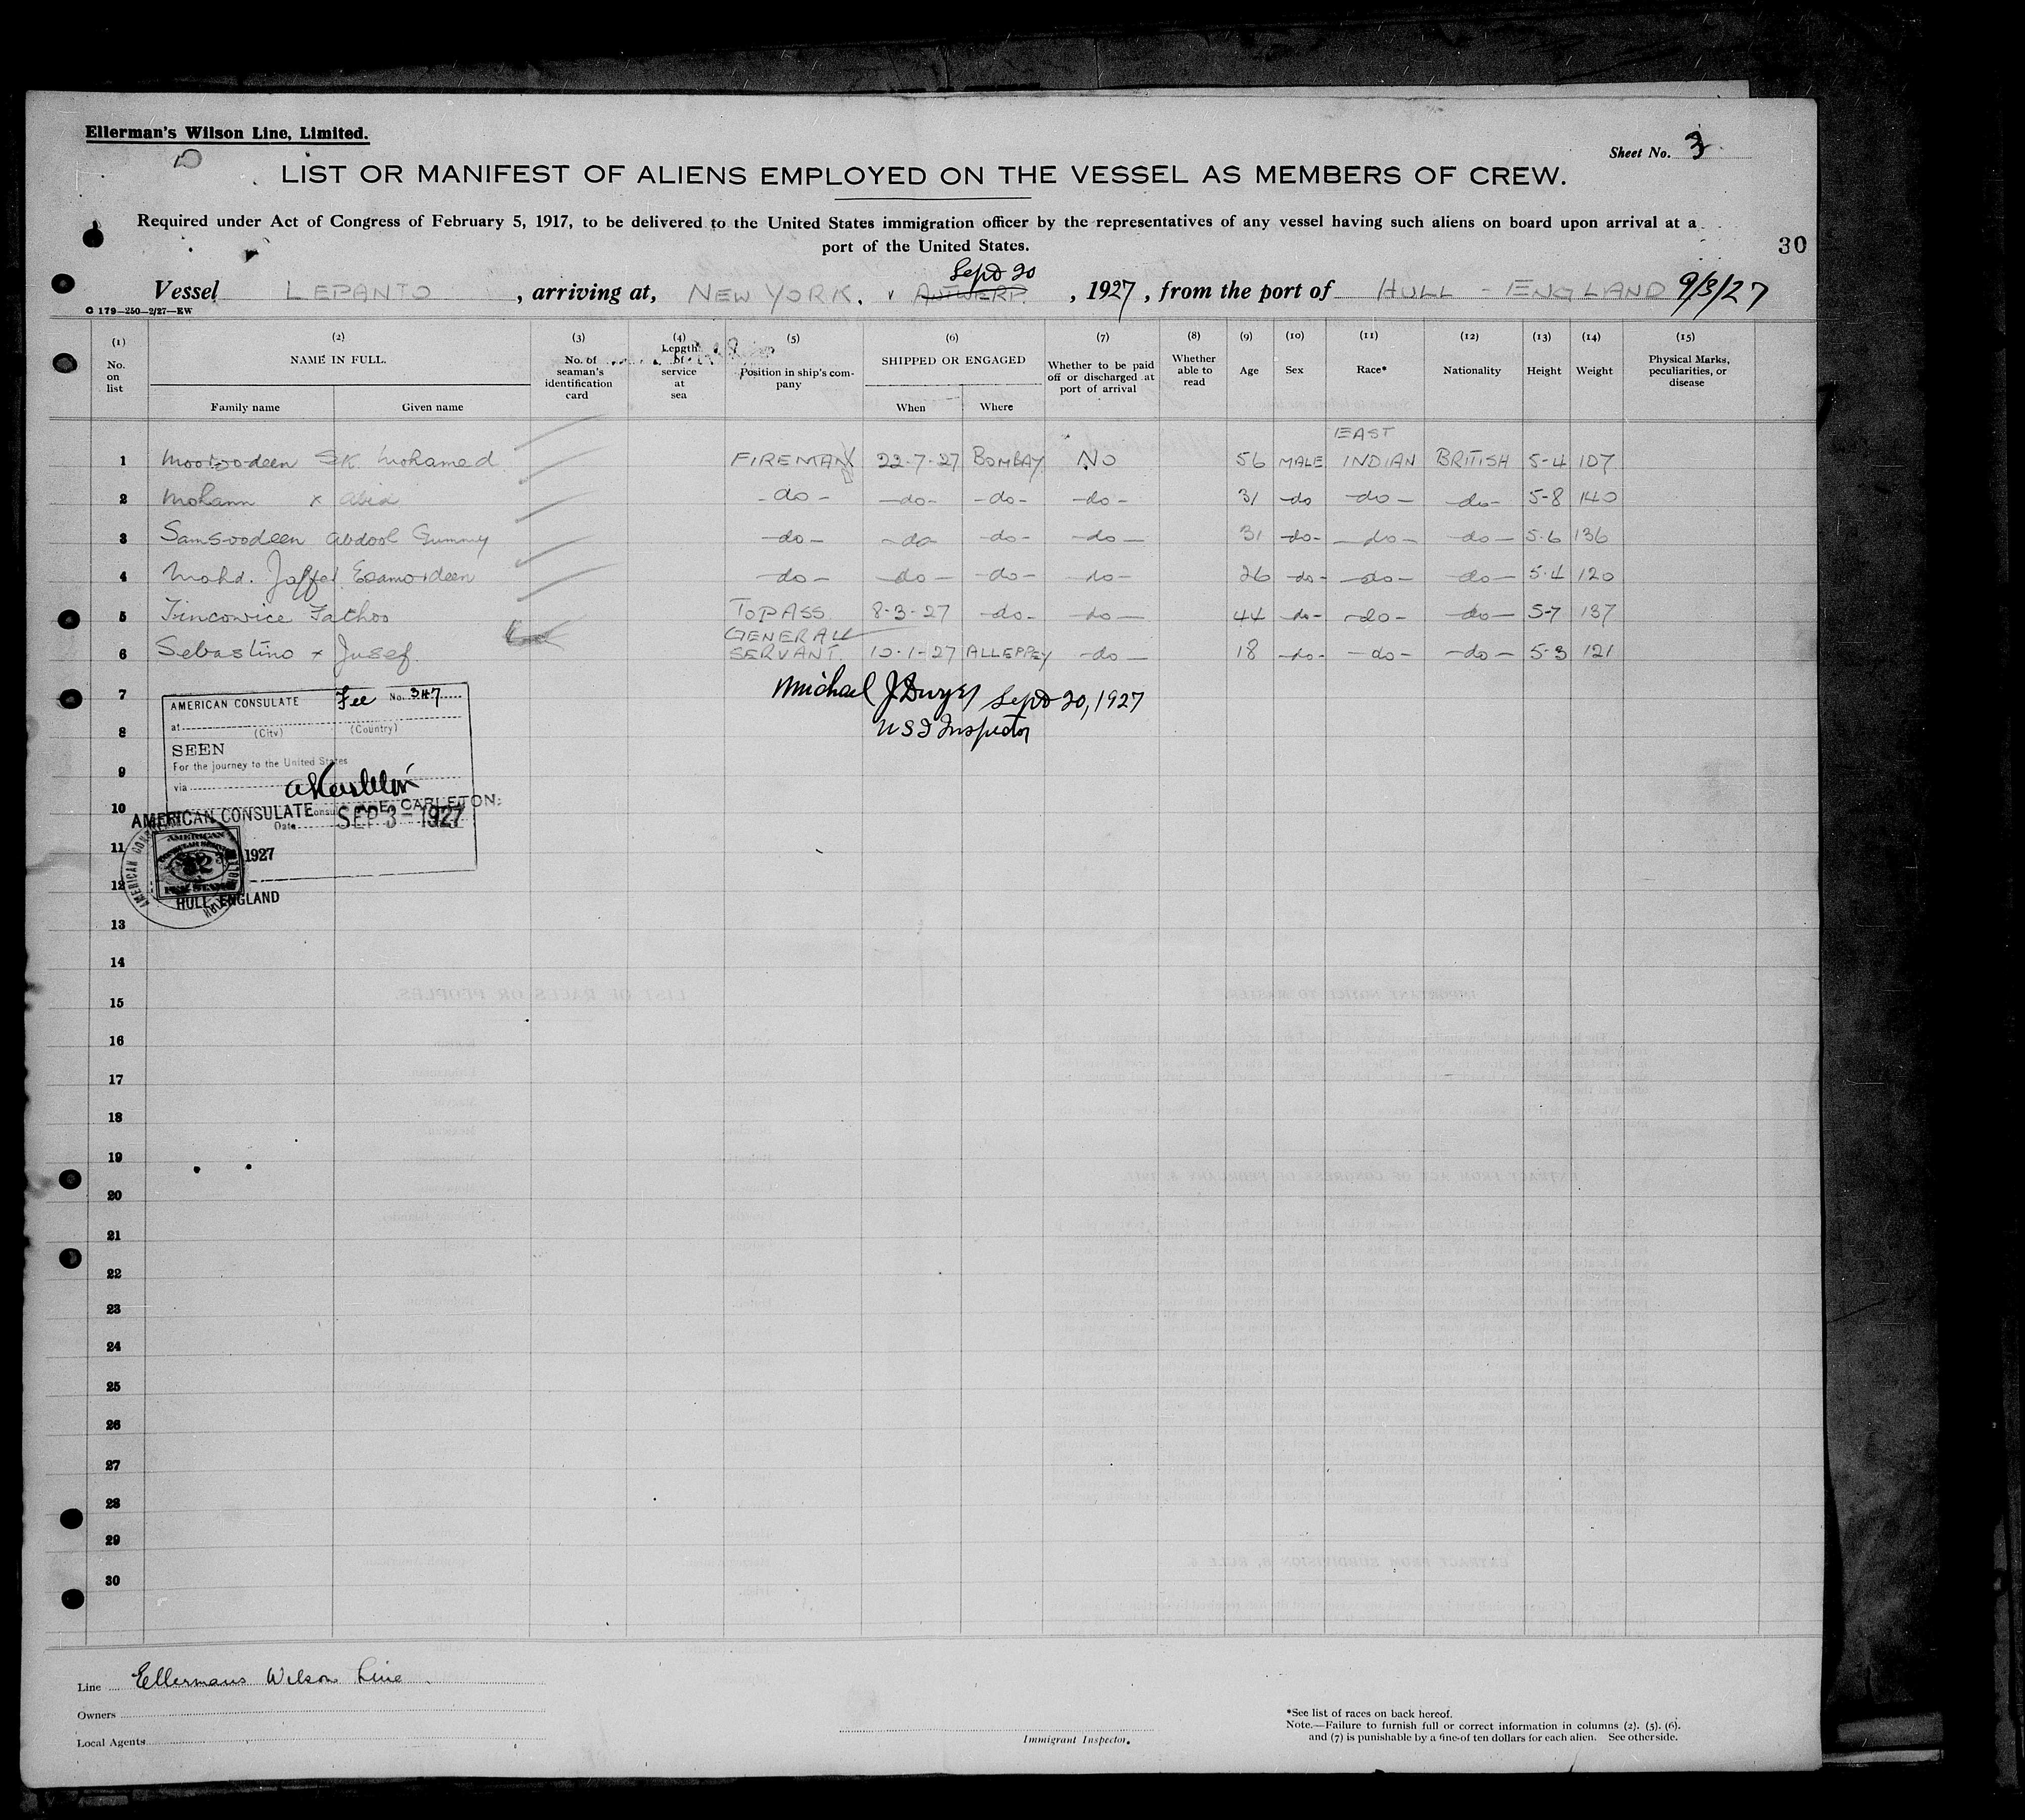 Ellerman's Wilson Line, Limited.
Sheet No. 3
LIST OR MANIFEST OF ALIENS EMPLOYED ON THE VESSEL AS MEMBERS OF CREW.
Required under Act of Congress of February 5, 1917, to be delivered to the United States immigration officer by the representatives of any vessel having such aliens on board upon arrival at a
port of the United States.
30
Sept 20
Vessel LEPANTO, arriving at, NEW YORK. v ANTWERP, 1927, from the port of HULL - ENGLAND 9/3/27
C 179—250—2/27—EW
(1) (2) (3) (4) (5) (6) (7) (8) (9) (10) (11) (12) (13) (14) (15)
No. on list
NAME IN FULL.
Family name Given name
No. of seaman's identification card
Length of service at sea
Position in ship's company
SHIPPED OR ENGAGED
When Where
Whether to be paid off or discharged at port of arrival
Whether able to read
Age Sex Race* Nationality Height Weight
Physical Marks, peculiarities, or disease
EAST
1 Mootoodeen SK. Mohamed FIREMAN 22-7-27 BOMBAY NO 56 MALE INDIAN BRITISH 5-4 107
2 Mohann x Abid -do- -do- -do- -do- 31 -do -do- -do- 5-8 140
3 Samsoodeen Abdool Gummy -do- -do- -do- -do- 31 -do- -do- -do- 5-6 136
4 Mohd. Joffer Esamoodeen -do- -do- -do- -do- 26 -do- -do- -do- 5-4 120
5 Tincowice Fathoo TOPASS 8-3-27 -do- -do- 44 -do- -do- -do- 5-7 137
GENERAL
6 Sebastino x Jusef. SERVANT. 10-1-27 ALLEPPEY -do- 18 -do- -do- -do- 5-3 121
7
Michael J Dwyer Sept 20, 1927
8
U S I Inspector
AMERICAN CONSULATE Fee No. 347
at (City) (Country)
SEEN
For the journey to the United States
via
9
10
AMERICAN CONSULATE
CARLETON.
Date SEP 3 - 1927
11
1927
12
HULL, ENGLAND
13
14
15
16
17
18
19
20
21
22
23
24
25
26
27
28
29
30
Line Ellermans Wilson Line
Owners
Local Agents
Immigrant Inspector.
*See list of races on back hereof.
Note.—Failure to furnish full or correct information in columns (2). (5). (6).
and (7) is punishable by a fine of ten dollars for each alien. See other side.